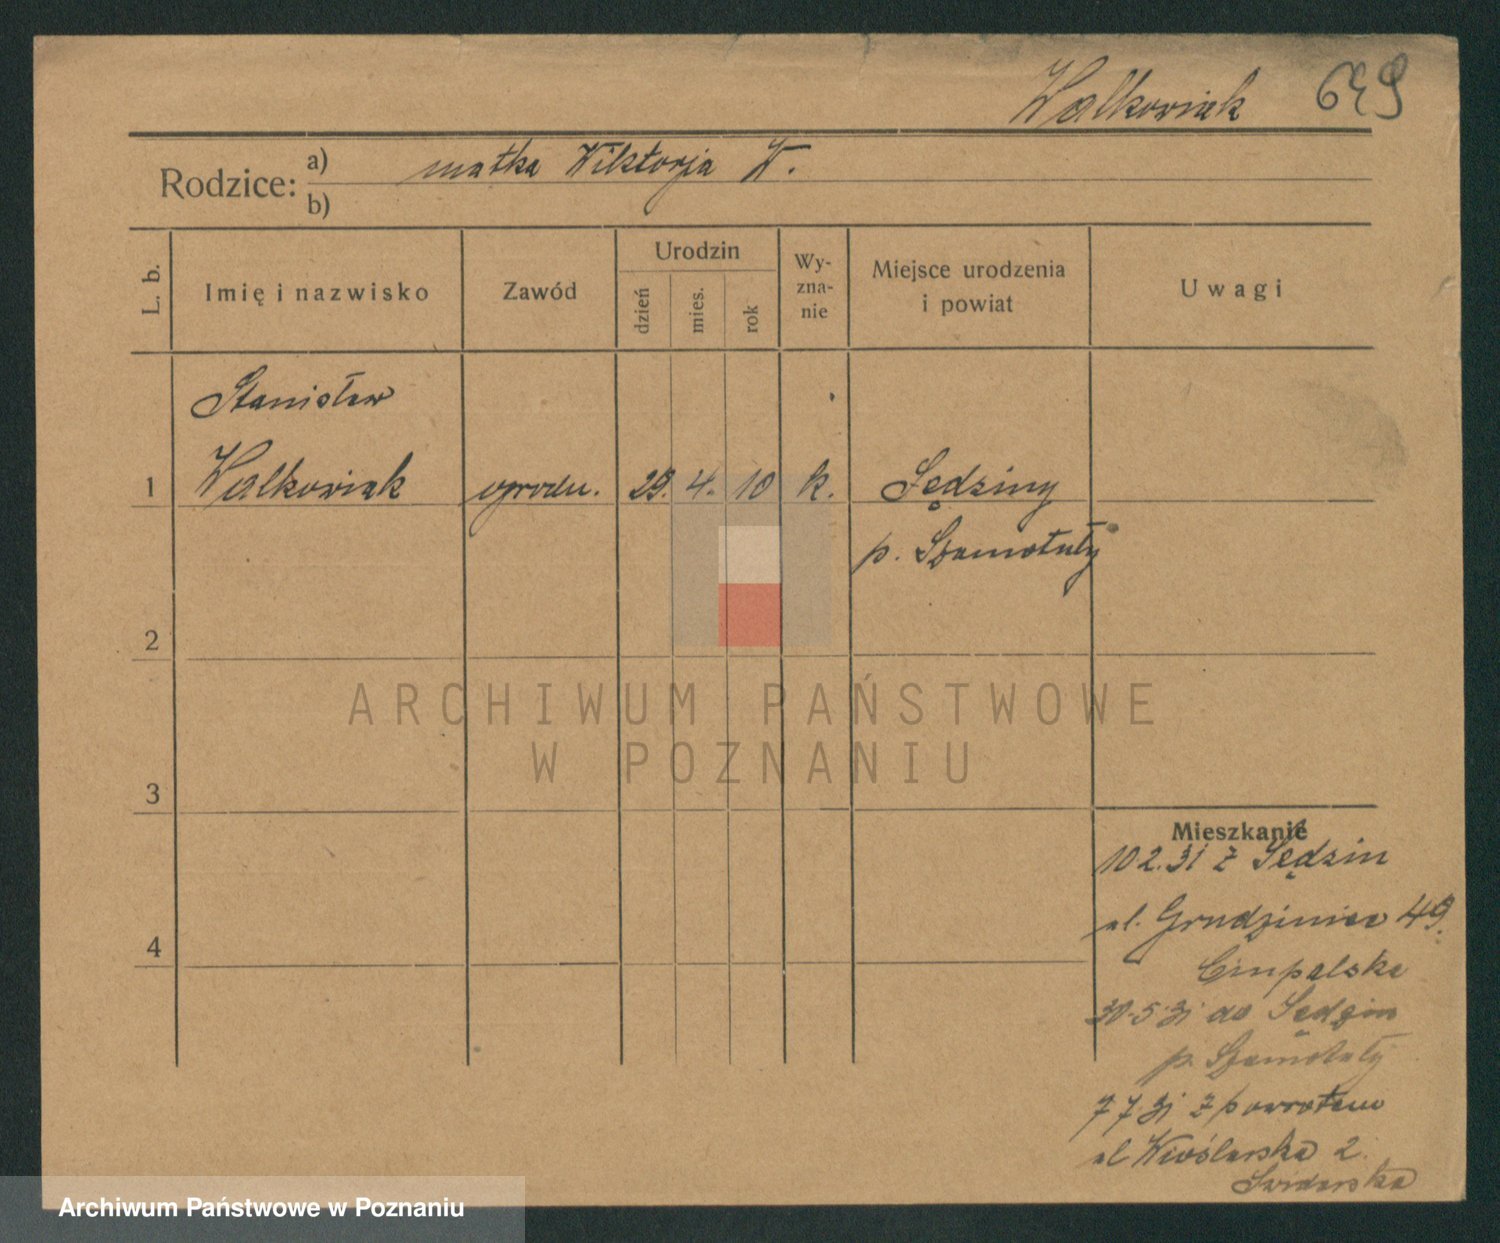 Walkowiak 649
Rodzice: a) matka Wiktorja W.
b)
L. b.
Imię i nazwisko
Zawód
Urodzin
dzień
mies.
rok
Wy-
zna-
nie
Miejsce urodzenia
i powiat
Uwagi
Stanisław
1 Walkowiak ogrodn. 29. 4. 10 k. Sędziny
p. Szamotuły
2
3
4
Mieszkanie
10 2. 31 z Sędzin
ul. Grudzieniec 49.
30-5-31 do Sędzin
p. Szamotuły
7 7 31 z powrotem
ul Wioślarska 2.
Świderska
ARCHIWUM PAŃSTWOWE
W POZNANIU
Archiwum Państwowe w Poznaniu